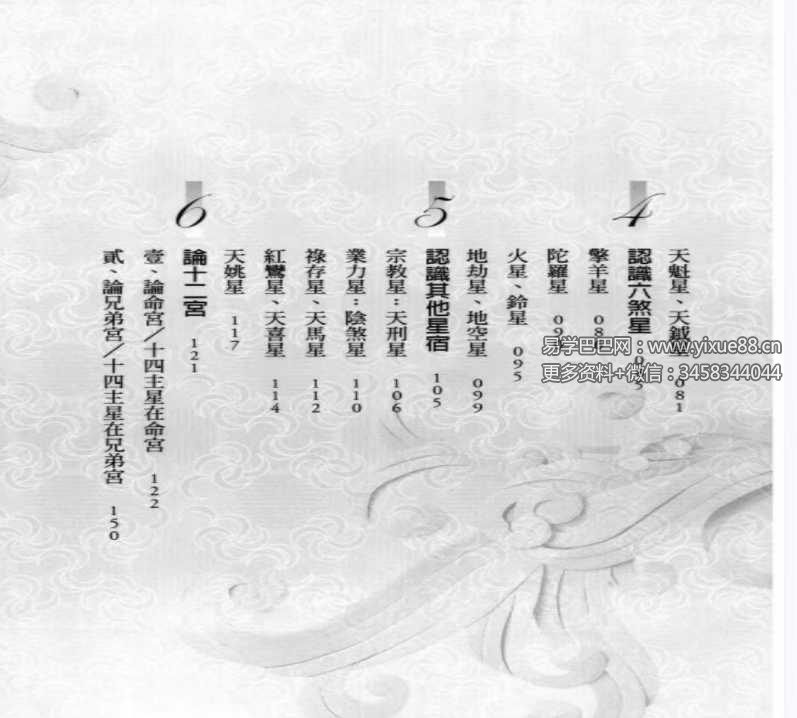 天魁星、天鉞星 081
4
認識六煞星
擎羊星
陀羅星
火星、鈴星 095
地劫星、地空星 099
5
認識其他星宿 105
宗教星：天刑星 106
業力星：陰煞星 110
祿存星、天馬星 112
紅鸞星、天喜星 114
天姚星 117
6
論十二宮 121
壹、論命宮／十四主星在命宮 122
貳、論兄弟宮／十四主星在兄弟宮 150
易学巴巴网：www.yixue88.cn
更多资料+微信：3458344044